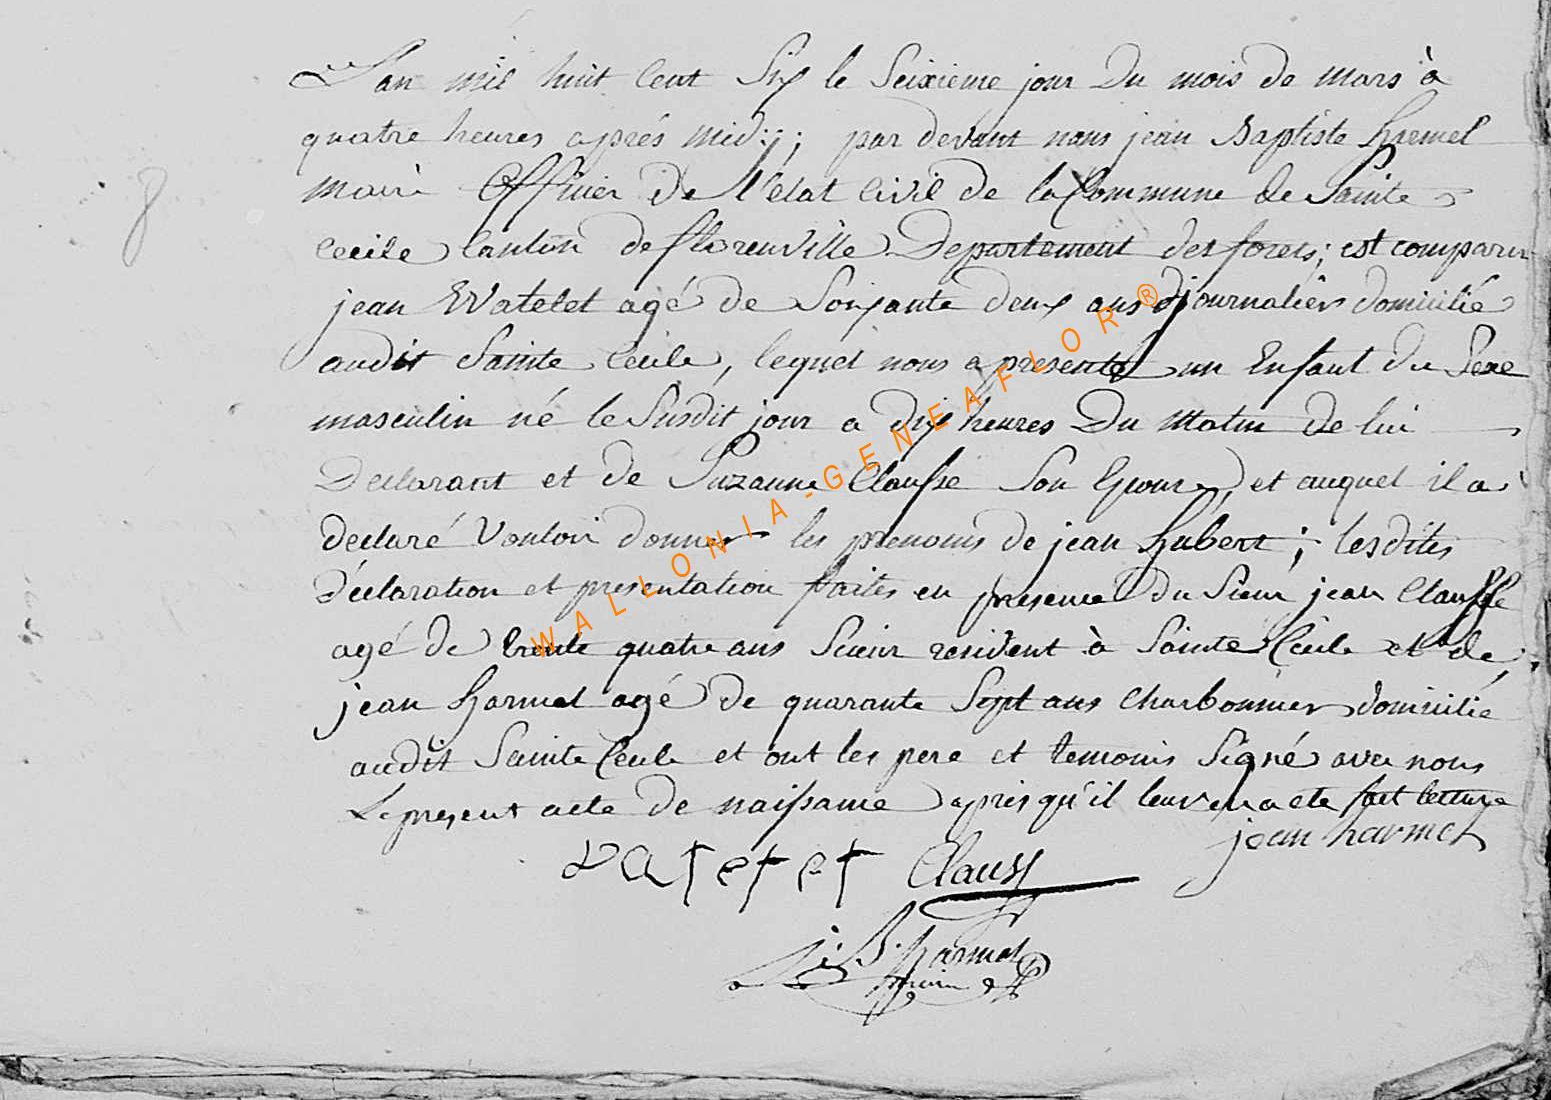 L'an mil huit Cent Six le Seixieme jour Du mois de mars à
quatre heures aprés midi; par devant nous jean Baptiste Harmel
maire Officier De l'état Civil de la Commune de Sainte
Cecile Canton de florenville Departement des forets; est comparu
jean Watelet agé de Soixante deux ans journalier domicilié
audit Sainte Cecile, lequel nous a presenté un Enfant du Sexe
masculin né le Susdit jour a dix heures Du Matin de lui
Declarant et de Suzanne Clausse Son Epouse, et auquel il a
declaré Vouloir donner les prenoms de jean Hubert; lesdites
déclaration et presentation faites en presence Du Sieur jean Clausse
agé de trente quatre ans Scieur resident à Sainte Cecile et de
jean Harmel agé de quarante Sept ans Charbonnier domicilié
audit Sainte Cecile et ont les pere et temoins Signé avec nous
Le present acte de naissance aprés qu'il leur en a eté fait lecture
jean harmel
vatelet Clauss
J: B. harmel
maire
8
WALLONIA-GENEAFLOR®